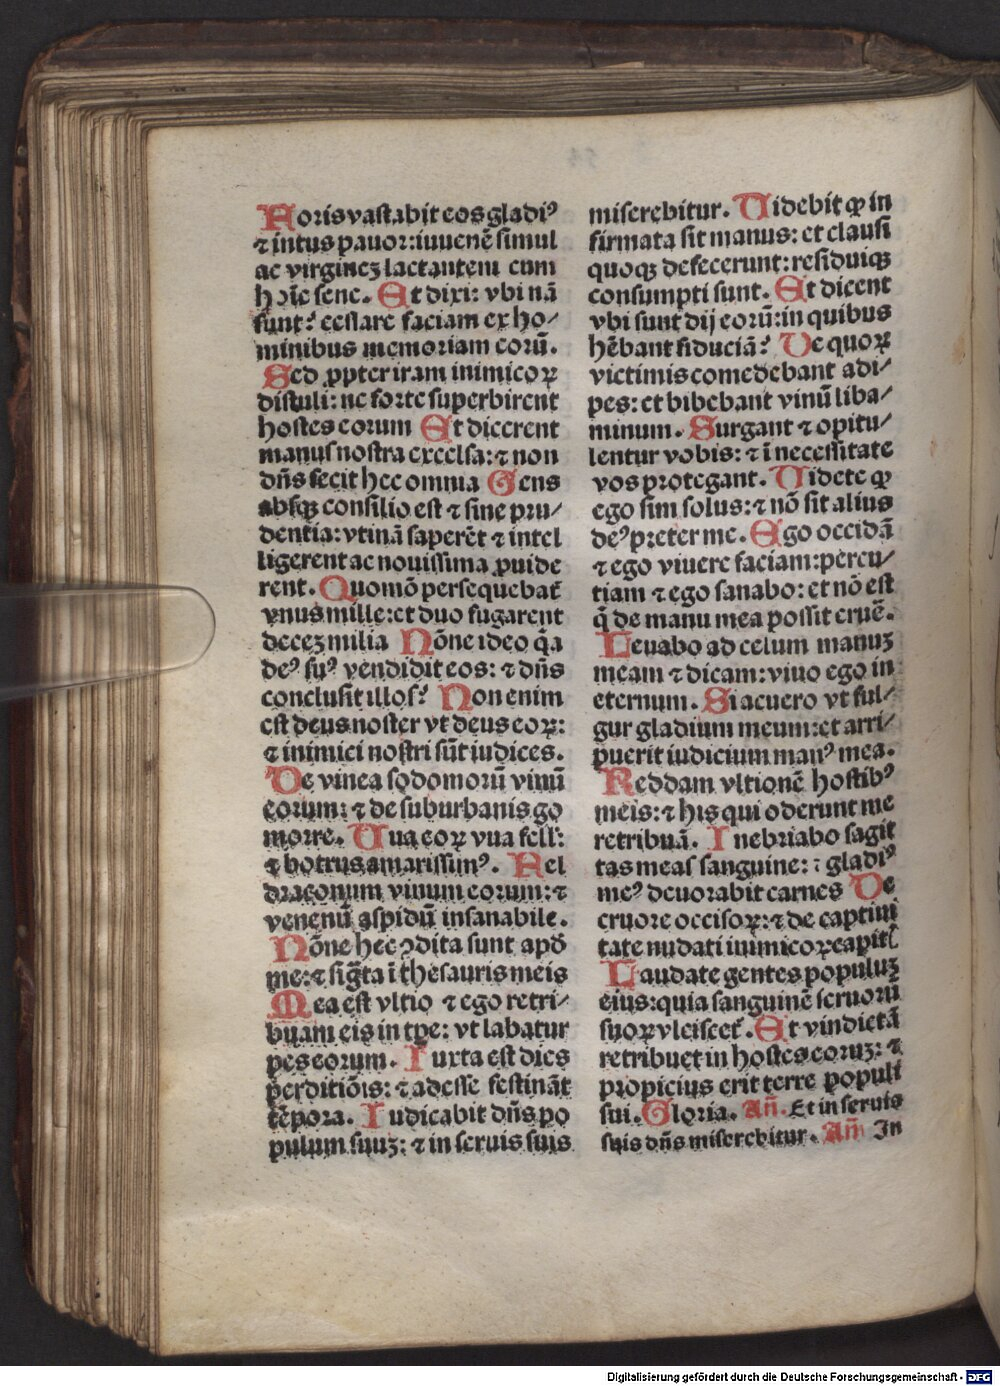 Foris vastabit eos gladiꝰ
⁊ intus pauor: iuuenē simul
ac virginez lactantem cum
hoīe sene. Et dixi: vbi nā
sunt? cessare faciam ex ho⸗
minibus memoriam eorū.
Sed ꝓpter iram inimicoꝝ
distuli: ne forte superbirent
hostes eorum Et dicerent
manus nostra excelsa: ⁊ non
dn̄s fecit hec omnia Gens
absqꝫ consilio est ⁊ sine pru⸗
dentia: vtinā saperēt ⁊ intel
ligerent ac nouissima ꝓuide
rent. Quomō persequebat̄
vnus mille: et duo fugarent
decez milia Nōne ideo q̄a
deꝰ suꝰ vendidit eos: ⁊ dn̄s
conclusit illos? Non enim
est deus noster vt deus eoꝝ:
⁊ inimici nostri sūt iudices.
De vinea sodomorū vinū
eorum: ⁊ de suburbanis go
morre. Uua eoꝝ vua fell:
⁊ botrus amarissimꝰ. Fel
draconum vinum eorum: ⁊
venenū aspidū insanabile.
Nōne hec ꝯdita sunt apd̄
me: ⁊ siḡta ī thesauris meis
Mea est vltio ⁊ ego retri⸗
buam eis in tp̄e: vt labatur
pes eorum. Iuxta est dies
perditiōis: ⁊ adesse festināt
tēpora. Iudicabit dn̄s po
pulum suuꝫ: ⁊ in seruis suis
miserebitur. Uidebit ꝙ in
firmata sit manus: et clausi
quoqꝫ defecerunt: residuiqꝫ
consumpti sunt. Et dicent
vbi sunt dij eorū: in quibus
hēbant fiduciā? De quoꝝ
victimis comedebant adi⸗
pes: et bibebant vinū liba⸗
minum. Surgant ⁊ opitu⸗
lentur vobis: ⁊ ī necessitate
vos protegant. Uidete ꝙ
ego sim solus: ⁊ nō sit alius
deꝰ preter me. Ego occidā
⁊ ego viuere faciam: percu⸗
tiam ⁊ ego sanabo: et nō est
q̄ de manu mea possit eruē.
Leuabo ad celum manuꝫ
meam ⁊ dicam: viuo ego in
eternum. Si acuero vt ful⸗
gur gladium meum: et arri⸗
puerit iudicium manꝰ mea.
Reddam vltionē hostibꝰ
meis: ⁊ his qui oderunt me
retribuā. Inebriabo sagit
tas meas sanguine: ⁊ gladiꝰ
meꝰ deuorabit carnes De
cruore occisoꝝ: ⁊ de captiui
tate nudati inimicoꝝ capit̄
Laudate gentes populuꝫ
eius: quia sanguinē seruorū
suoꝝ vlciscet̄. Et vindietā
retribuet in hostes eoruꝫ: ⁊
propicius erit terre populi
sui. Gloria. An̄. Et in seruis
suis dn̄s miserebitur. An̄ In
Digitalisierung gefördert durch die Deutsche Forschungsgemeinschaft - DFG